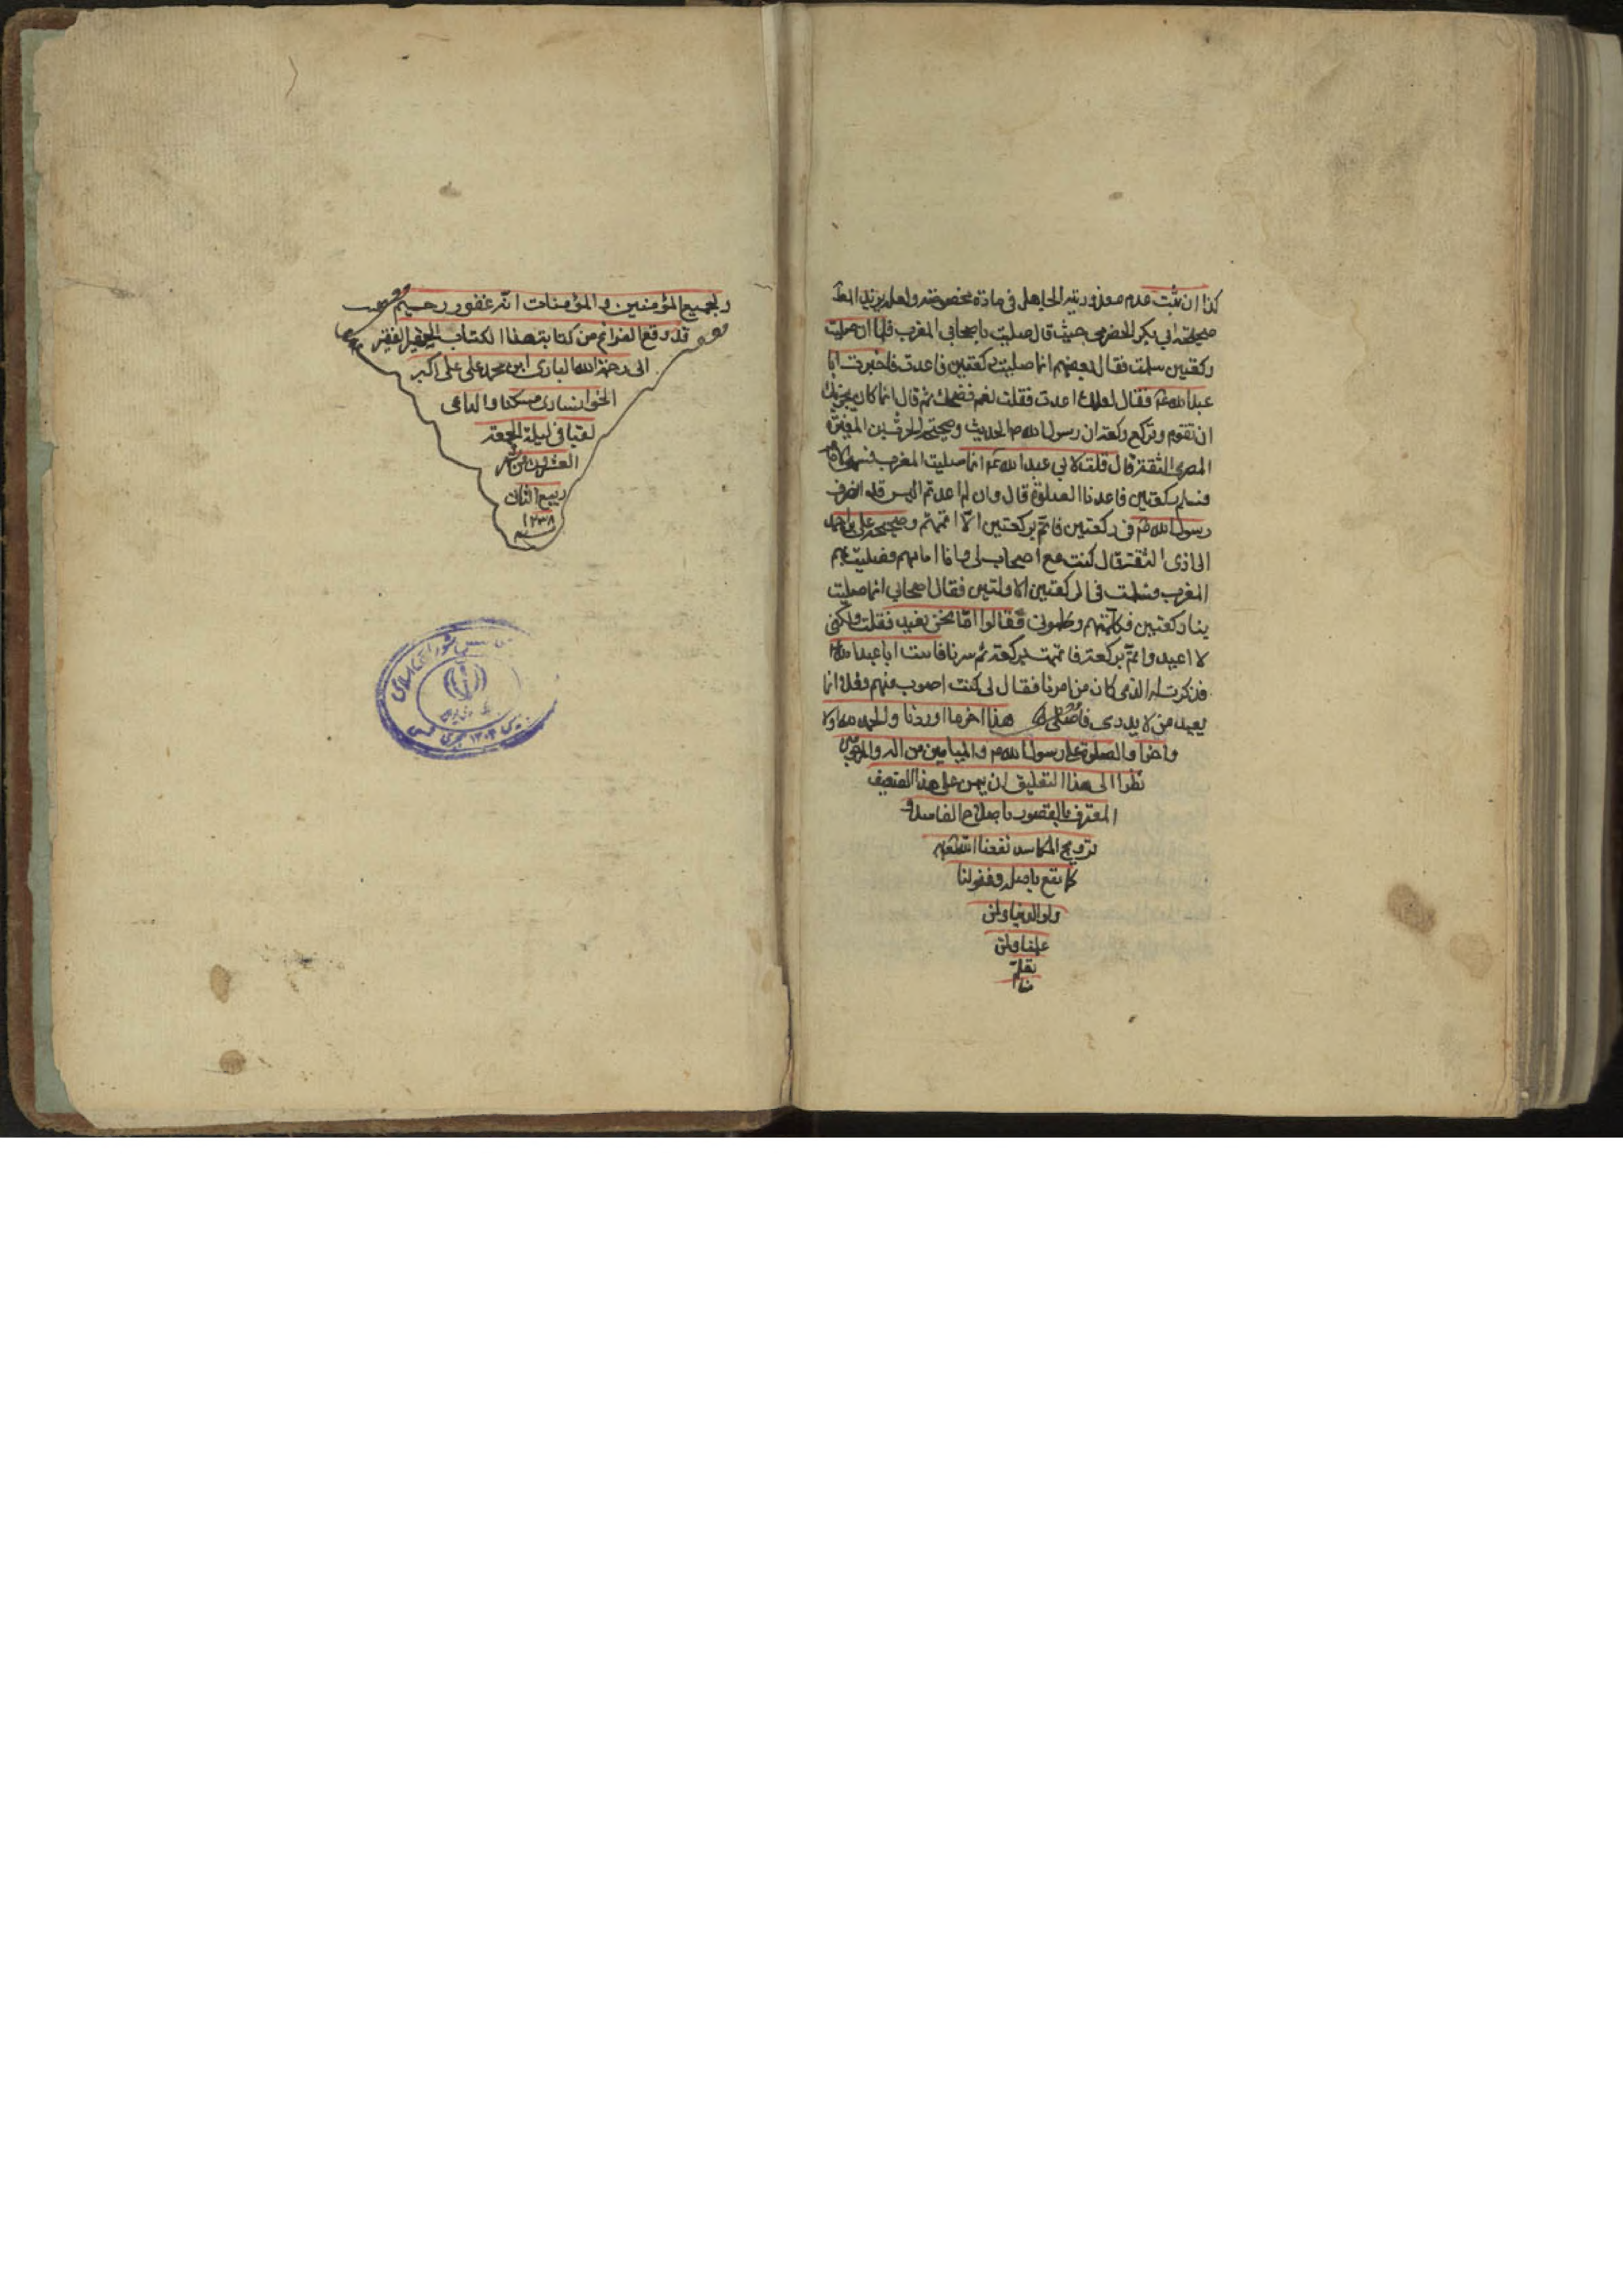 كذا ان ثبت عدم معذورية الجاهل فى مادة مخصوصة ولعله يؤيد
صحيحة ابي بكر الحضرمى حيث قال صليت باصحابي المغرب فلما ان صليت
ركعتين سلمت فقال بعضهم انما صليت ركعتين فاعدت فاخبرت ابا
عبد الله ع فقال لعلك اعدت فقلت نعم فضحك ثم قال انما كان يجزيك
ان تقوم وتركع ركعة ان رسول الله ص الحديث وصحيحة الحرث بن المغيرة
النصرى الثقة قال قلت لابي عبد الله ع انا صلينا المغرب فسهى الامام
فسلم بركعتين فاعدنا الصلوة قال ولم اعدتم اليس قد انصرف
رسول الله ص فى ركعتين فاتم بركعتين الا اتممتم وصحيحة على
الثقة قال كنت مع اصحاب لى وانا امامهم فصليت بهم
المغرب فسلمت فى الركعتين الاولتين فقال اصحابي انما صليت
بنا ركعتين فكلمتهم وكلمونى فقالوا اما نحن نعيد فقلت ولكنى
لا اعيد واتم بركعة فاتممت بركعة ثم سرنا فاتيت ابا عبد الله ع
فذكرت له الذى كان من امرنا فقال لى كنت اصوب منهم فعلا انما
يعيد من لا يدرى ما صلى هذا اخر ما اوردنا والحمد لله اولا
واخرا والصلوة على رسول الله ص والميامين من اله والمرجو من
نظر الى هذا التعليق ان يمن على هذا الضعيف
المعترف بالقصور باصلاح الفاسد و
ترويج الكاسد نفعنا الله به
كما نفع باصله وغفر لنا
ولوالدينا ولمن
علمنا ولمن
تعلم
تم
ولجميع المؤمنين والمؤمنات انه غفور رحيم
قد وقع الفراغ من كتابة هذا الكتاب الحقير الفقير
الى رحمة الله البارى ابن محمد على على اكبر
الخوانسارى مسكنا والداعى
لقبا فى ليلة الجمعة
العشرون من شهر
ربيع الثانى
١٢٣٨
سنه